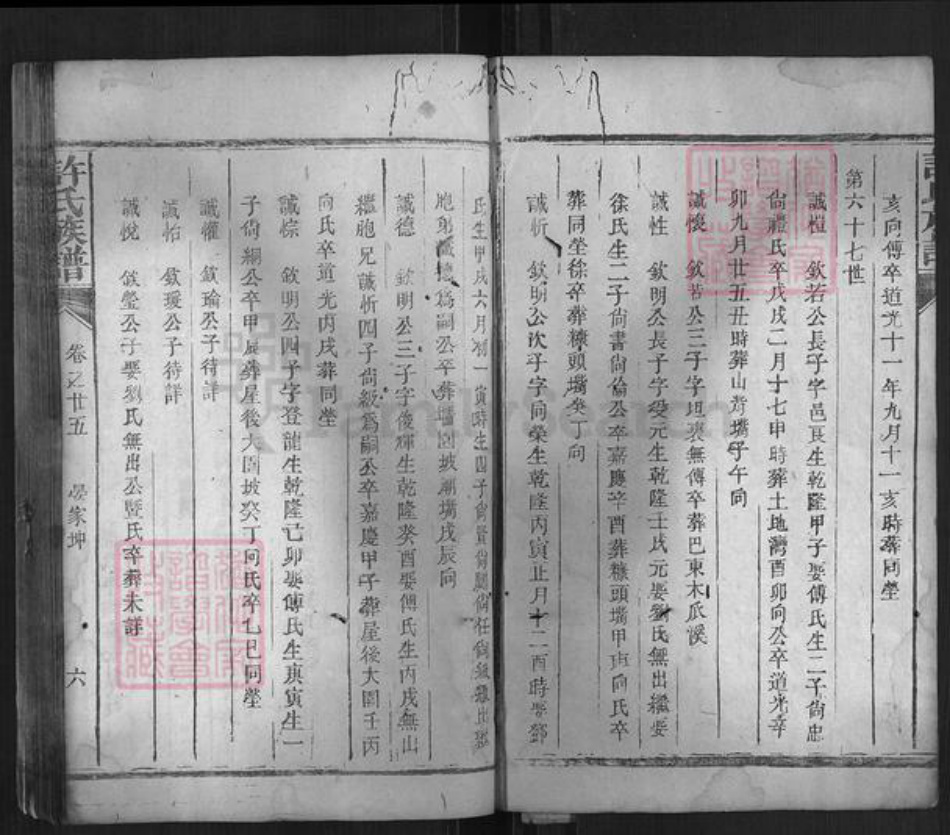 亥向傅卒道光十一年九月十一亥時葬同塋
第六十七世
誠愷 欽若公長子字邑良生乾隆甲子娶傅氏生二子尙忠
尙禮氏卒戊戌二月十七申時葬土地灣酉卯向公卒道光辛
卯九月廿五丑時葬山背嘴子午向
誠懷 欽若公三子字坦衷無傳卒葬巴東木瓜溪
誠性 欽明公長子字受元生乾隆壬戌元娶劉氏無出繼娶
徐氏生二子尙書尙倫公卒嘉慶辛酉葬糠頭嘴甲庚向氏卒
葬同塋徐卒葬糠頭嘴癸丁向
誠忻 欽明公次子字向榮生乾隆丙寅正月十二酉時娶鄧
氏生甲戌六月初一寅時生四子尙賢尙 尙任尙級
胞弟誠德爲嗣公卒葬 園坡 嘴戌辰向
誠德 欽明公三子字俊輝生乾隆癸酉娶傅氏生丙戌無出
繼胞兄誠忻四子尙級爲嗣公卒嘉慶甲子葬屋後大園壬丙
向氏卒道光丙戌葬同塋
誠棕 欽明公四子字登龍生乾隆己卯娶傅氏生庚寅生一
子尙綱公卒甲辰葬屋後大園坡癸丁向氏卒乙巳同塋
誠懽 欽瑜公子待詳
誠怡 欽瑗公子待詳
誠悅 欽瑩公子娶劉氏無出公暨氏卒葬未詳
許氏族譜 卷之廿五 晏家坤 六